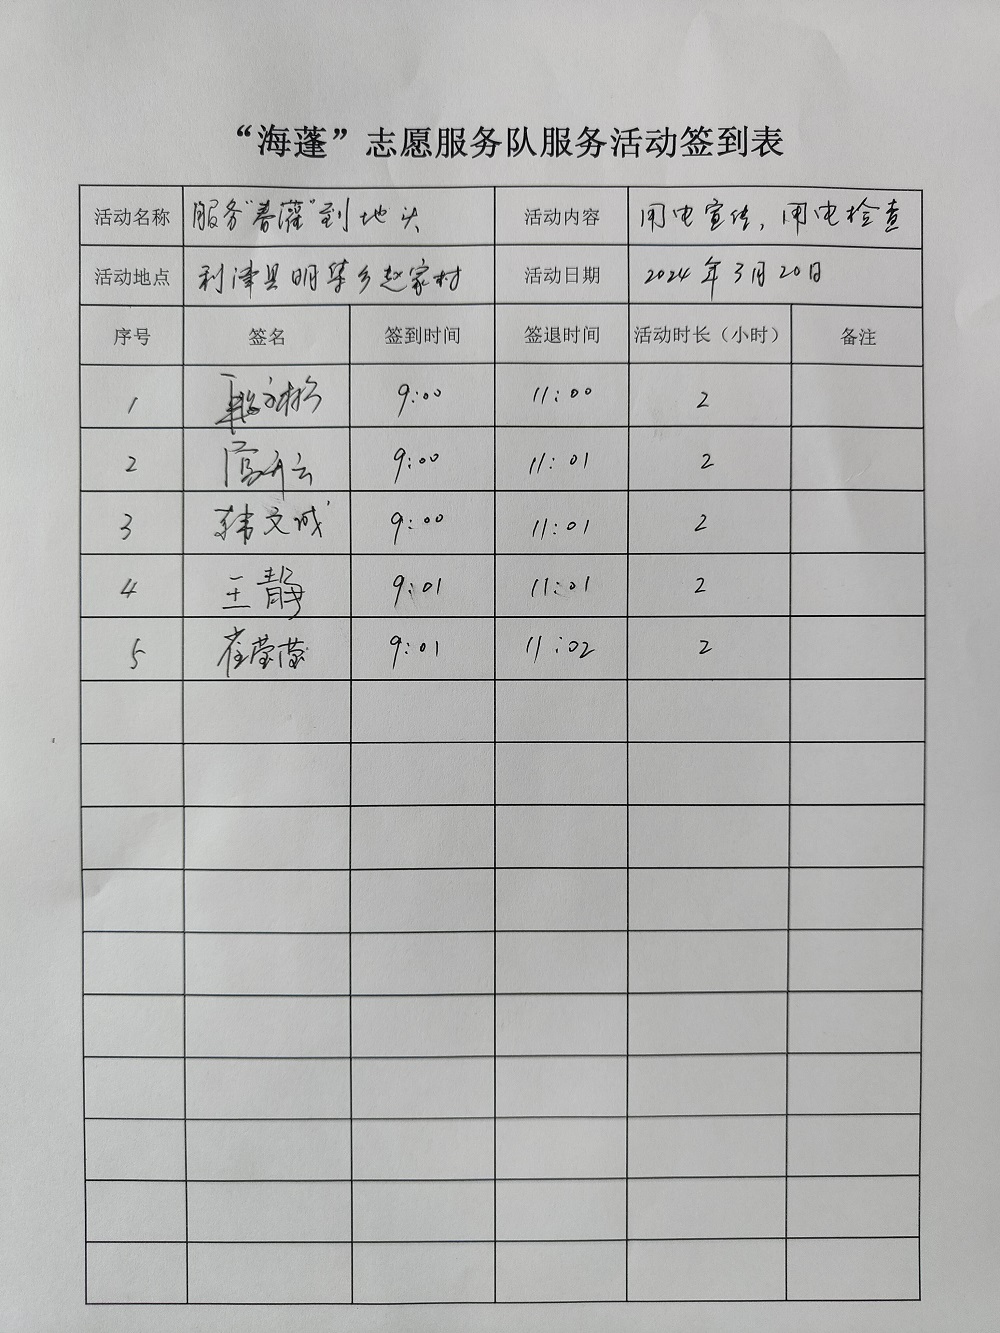 “海蓬”志愿服务队服务活动签到表
活动名称 服务“春灌”到地头 活动内容 用电宣传，用电检查
活动地点 利津县明集乡赵家村 活动日期 2024年3月20日
序号 签名 签到时间 签退时间 活动时长（小时） 备注
1 9:00 11:00 2
2 9:00 11:01 2
3 韩文成 9:00 11:01 2
4 王静 9:01 11:01 2
5 崔莹莹 9:01 11:02 2